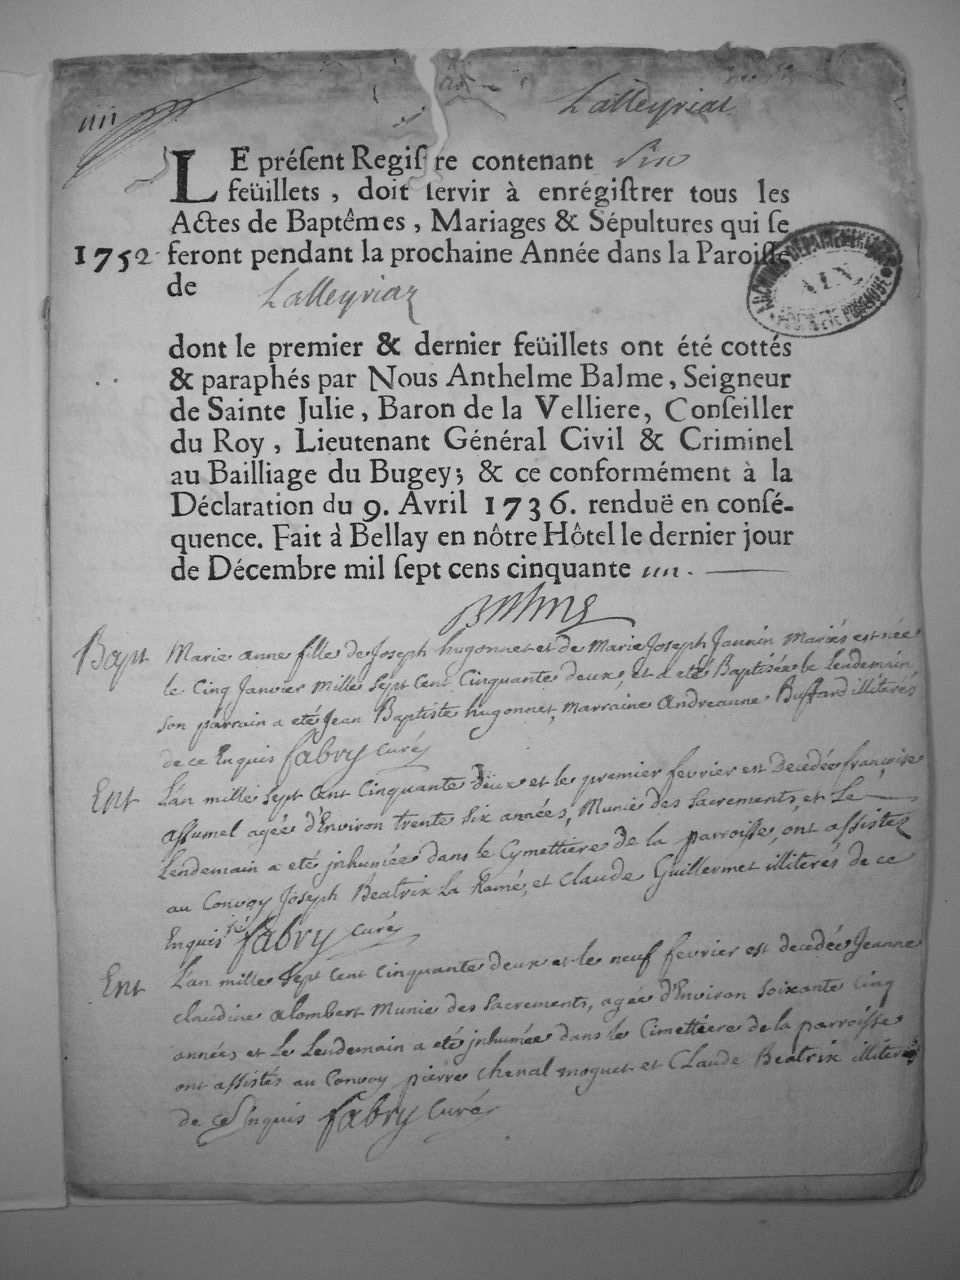 Lalleyriat
LE préſent Regiſtre contenant Six
feüillets, doit ſervir à enrégiſtrer tous les
Actes de Baptêmes, Mariages & Sépultures qui ſe
1752 feront pendant la prochaine Année dans la Paroiſſe
de Lalleyriaz
ARCHIVES DÉPARTEMENTALES
AIN
dont le premier & dernier feüillets ont été cottés
& paraphés par Nous Anthelme Balme, Seigneur
de Sainte Julie, Baron de la Velliere, Conſeiller
du Roy, Lieutenant Général Civil & Criminel
au Bailliage du Bugey; & ce conformément à la
Déclaration du 9. Avril 1736. renduë en conſé-
quence. Fait à Bellay en nôtre Hôtel le dernier jour
de Décembre mil ſept cens cinquante un.
Balme
Bapt Marie anne fille de Joseph hugonnet et de Marie Joseph Jannin Mariés est née
le Cinq Janvier Mille Sept Cent Cinquante deux, et a eté Baptisée le lendemain
son parrain a eté Jean Baptiste hugonnet, marraine andreanne Buffard illiterés
de ce Enquis fabry Curé
Ent L'an mille sept Cent Cinquante deux et le premier fevrier est Decedée françoise
assumel agée d'Environ trente six années, Munie des Sacrements, et Le
Lendemain a eté jnhumée dans le Cymettiere de la parroisse, ont assistez
au Convoy Joseph Beatrix La Ramé, et Claude Guillermet illiterés de ce
Enquis fabry Curé
Ent L'an mille Sept Cent Cinquante deux et le neuf fevrier est decedée Jeanne
claudine alombert Munie des Sacrements, agée d'Environ soixante Cinq
années et Le Lendemain a eté jnhumée dans le Cimettiere de la parroisse
ont assistés au Convoy pierre Chenal moguet et Claude Beatrix illiterés
de ce Enquis fabry Curé